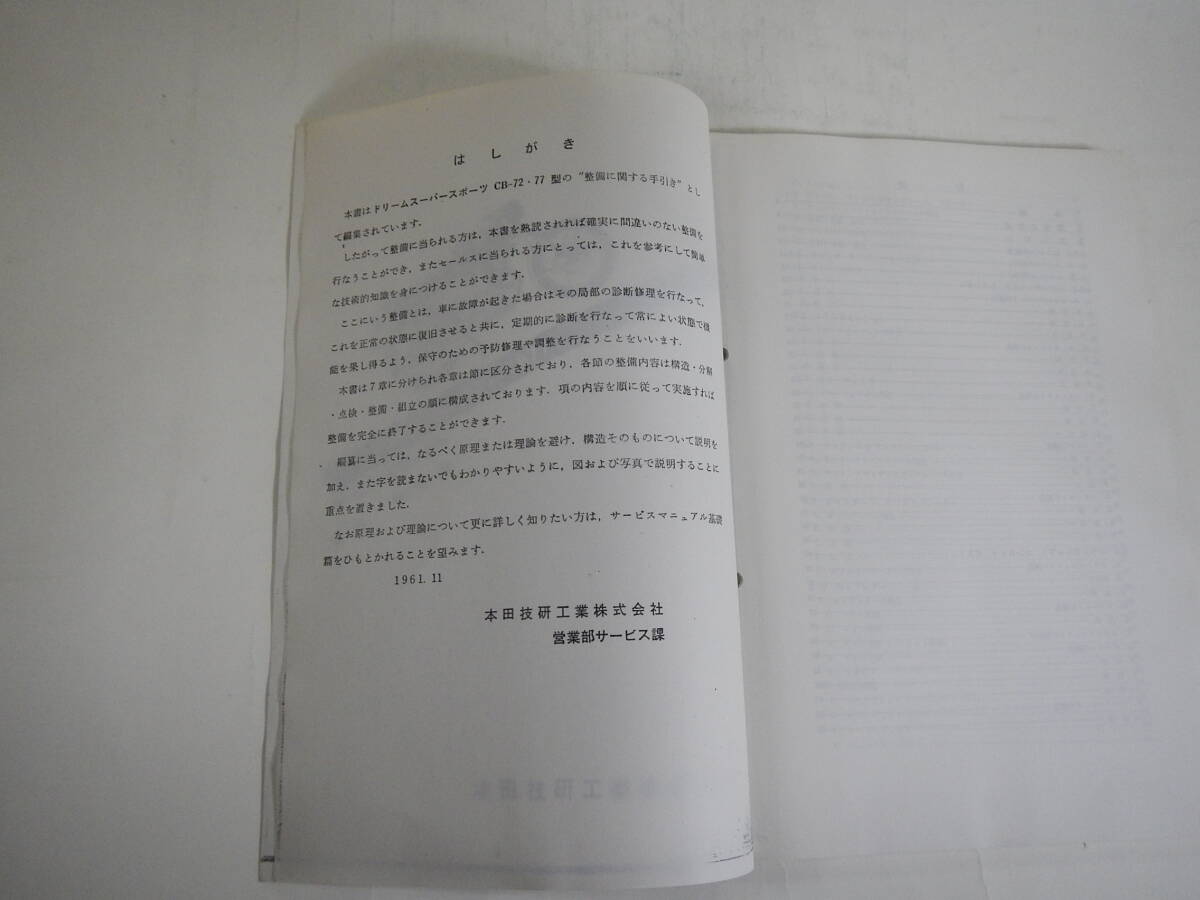 はしがき
本書はドリームスーパースポーツ CB-72・77 型の “整備に関する手引き” とし
て編集されています.
したがって整備に当られる方は, 本書を熟読されれば確実に間違いのない整備を
行なうことができ, またセールスに当られる方にとっては, これを参考にして簡単
な技術的知識を身につけることができます.
ここにいう整備とは, 車に故障が起きた場合はその局部の診断修理を行なって,
これを正常の状態に復旧させると共に, 定期的に診断を行なって常によい状態で機
能を果し得るよう, 保守のための予防修理や調整を行なうことをいいます.
本書は7章に分けられ各章は節に区分されており, 各節の整備内容は構造・分解
・点検・整備・組立の順に構成されております. 項の内容を順に従って実施すれば
整備を完全に終了することができます.
編纂に当っては, なるべく原理または理論を避け, 構造そのものについて説明を
加え, また字を読まないでもわかりやすいように, 図および写真で説明することに
重点を置きました.
なお原理および理論について更に詳しく知りたい方は, サービスマニュアル基礎
篇をひもとかれることを望みます.
1961. 11
本田技研工業株式会社
営業部サービス課